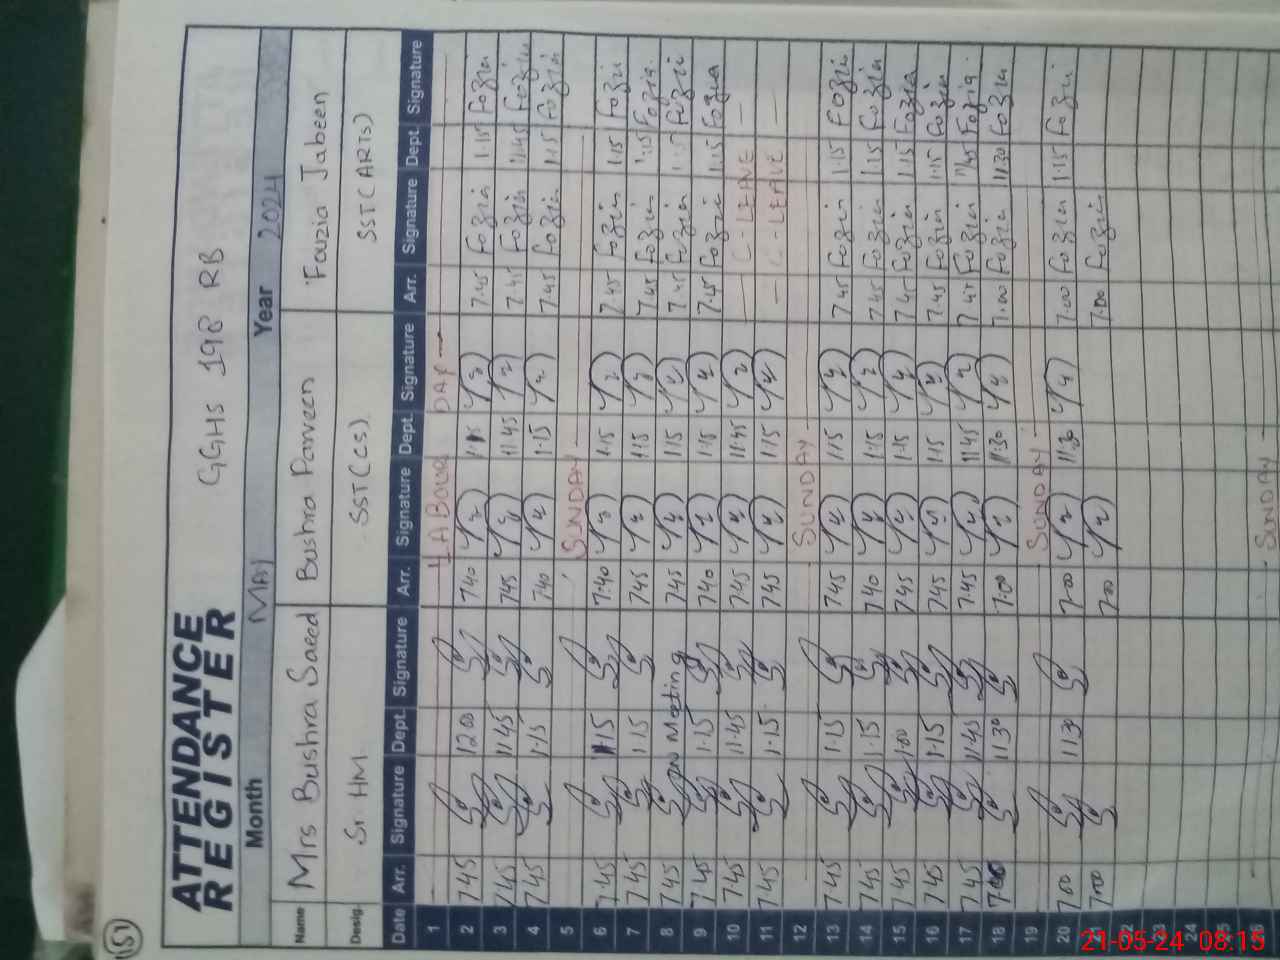 151
ATTENDANCE
REGISTER
GGHS 198 RB
Month MAY Year 2024
Name Mrs Bushra Saeed Bushra Parveen Fouzia Jabeen
Desig. Sr HM SST(CS) SST(ARTS)
Date Arr. Signature Dept. Signature Arr. Signature Dept. Signature Arr. Signature Dept. Signature
1 LABOUR DAY
2 7.45 1200 7.40 1.15 7.45 Fozia 1.15 Fozia
3 7.45 11.45 745 11.45 7.45 Fozia 11.45 Fozia
4 7.45 1.15 740 1.15 7.45 Fozia 1.15 Fozia
5 SUNDAY
6 7.45 1.15 7.40 1.15 7.45 Fozia 1.15 Fozia
7 7.45 1.15 745 1.15 7.45 Fozia 1.15 Fozia
8 745 ON Meeting 745 1.15 7.45 Fozia 1.15 Fozia
9 7.45 1.15 740 1.15 7.45 Fozia 1.15 Fozia
10 7.45 11.45 745 11.45 C-LEAVE
11 7.45 1.15 745 1.15 C-LEAVE
12 SUNDAY
13 7.45 1.15 745 1.15 7.45 Fozia 1.15 Fozia
14 7.45 1.15 740 1.15 7.45 Fozia 1.15 Fozia
15 7.45 1.00 745 1.15 7.45 Fozia 1.15 Fozia
16 7.45 1.15 745 1.15 7.45 Fozia 1.15 Fozia
17 7.45 11.45 7.45 11.45 7.45 Fozia 11.45 Fozia
18 7.00 1130 7:00 11:30 7.00 Fozia 11.30 Fozia
19 SUNDAY
20 700 1130 7.00 11.30 7.00 Fozia 1.15 Fozia
21 7.00 7.00 7.00 Fozia
22
23
24
25
26 SUNDAY
21-05-24 08:15